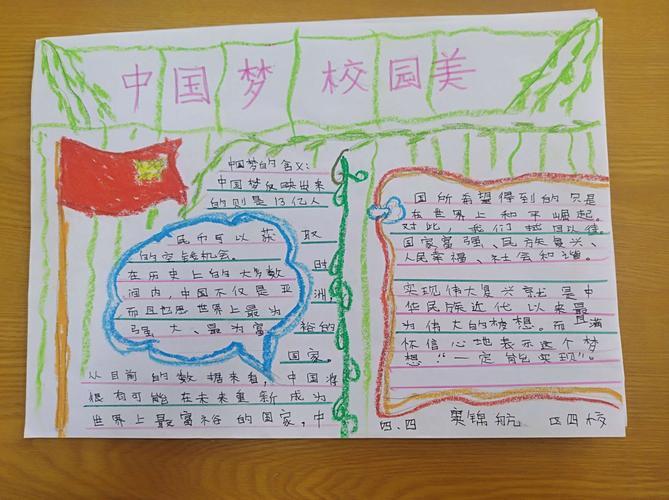 中国梦 校园美
中国梦的含义：
中国梦反映出来
的则是13亿人
民币可以获取
的交钱机会。
在历史上的大多数时
间内，中国不仅是亚洲，
而且也是世界上最为
强大、最为富裕的
国家。
从目前的数据来看，中国准
很有可能在未来重新成为
世界上最富裕的国家，中
国所希望得到的只是
在世界上和平崛起。
对此，我们拭目以待。
国家富强、民族复兴、
人民幸福、社会和谐。
实现伟大复兴就是中
华民族近代以来最
为伟大的梦想。而且满
怀信心地表示这个梦
想“一定能实现”。
四、四 锦航 四四校